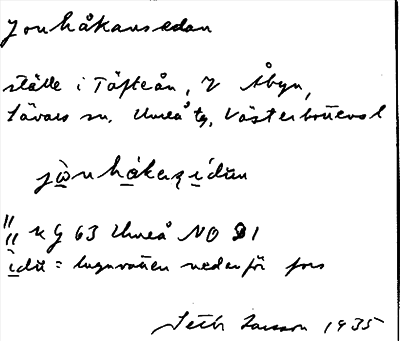 Jonhåkansedan
ställe i Täfteån, V Åbyn,
Sävars sn, Umeå tg, Västerbottens l
jònhákaṣídan
" KG 63 Umeå NO 91
ìdu = lugnvatten nedanför fors
Seth Larsson 1935